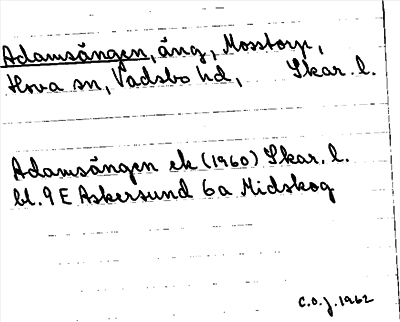 Adamsängen, äng, Mosstorp,
Hova sn, Vadsbo hd, Skar. l.
Adamsängen ek (1960) Skar. l.
bl. 9 E Askersund 6a Midskog
C.O.J. 1962